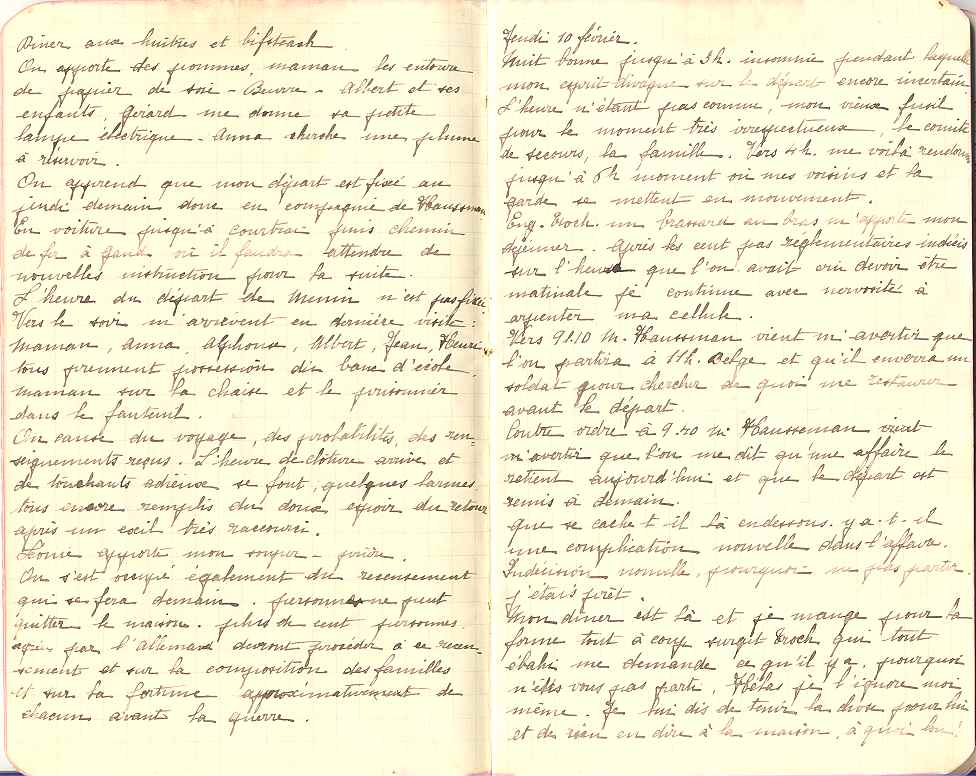 Diner aux huitres et bifsteack
On apporte des pommes, maman les entoure
de papier de soie - Beurre - Albert et ses
enfants, Gérard me donne sa petite
lampe électrique - Anna cherche une plume
à réservoir.
On apprend que mon départ est fixé au
jeudi demain donc en compagnie de Hausseman
En voiture jusqu'à Courtrai puis chemin
de fer à Gand où il faudra attendre de
nouvelles instruction pour la suite.
L'heure du départ de Menin n'est pas fixée
Vers le soir m'arrivent en dernière visite :
Maman, Anna, Alphonse, Albert, Jean, Henri
tous prennent possession du banc d'école,
maman sur la chaise et le prisonnier
dans le fauteuil.
On cause du voyage, des probabilités, des ren-
seignements reçus. L'heure de clôture arrive et
de touchants adieux se font, quelques larmes,
tous encore remplis du doux espoir du retour
après un exil très raccourci.
apporte mon souper - poudre.
On s'est occupé également du recensement
qui se fera demain. personne ne peut
quitter la maison. plus de cent personnes
par l'allemand devront procéder à ce recen-
sement et sur la composition des familles
et sur la fortune approximativement de
chacun avant la guerre.
Jeudi 10 février.
Nuit bonne jusqu'à 3h. insomnie pendant laquelle
mon esprit divague sur le départ encore incertain
L'heure n'étant pas connue, mon vieux fusil
pour le moment très irrespectueux, le comité
de secours, la famille. Vers 4h. me voilà rendormi
jusqu'à 6h moment où mes voisins et la
garde se mettent en mouvement.
Eug. Kroch. un brassard au bras m'apporte mon
déjeuner. Après les cent pas réglementaires indécis
sur l'heure que l'on avait cru devoir être
matinale je continue avec nervosité à
arpenter ma cellule.
Vers 9h10 M. Hausseman vient m'avertir que
l'on partira à 11h. belge et qu'il enverra un
soldat pour chercher de quoi me restaurer
avant le départ.
Contre ordre à 9.40 Mr Hausseman vient
m'avertir que l'on me dit qu'une affaire le
retient aujourd'hui et que le départ est
remis à demain.
que se cache-t-il là endessous. y a-t-il
une complication nouvelle dans l'affaire.
Indécision nouvelle, pourquoi ne pas partir
j'étais prêt.
Mon diner est là et je mange pour la
forme tout à coup surgit Kroch qui tout
ébahi me demande ce qu'il y a. pourquoi
n'êtes vous pas parti, Hélas je l'ignore moi
même. Je lui dis de tenir la chose pour lui
et de rien en dire à la maison, à quoi bon!